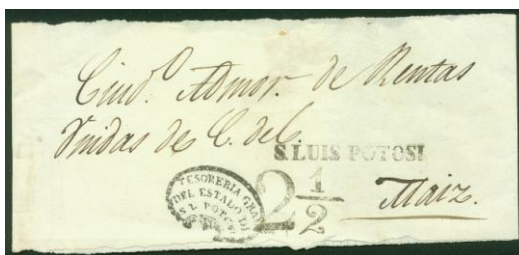 Ciud.º Admor. de Rentas
Unidas de C. del
S. LUIS POTOSI
TESORERIA GRAL
DEL ESTADO DE
S. L. POTOSI
2 1/2
Maiz.